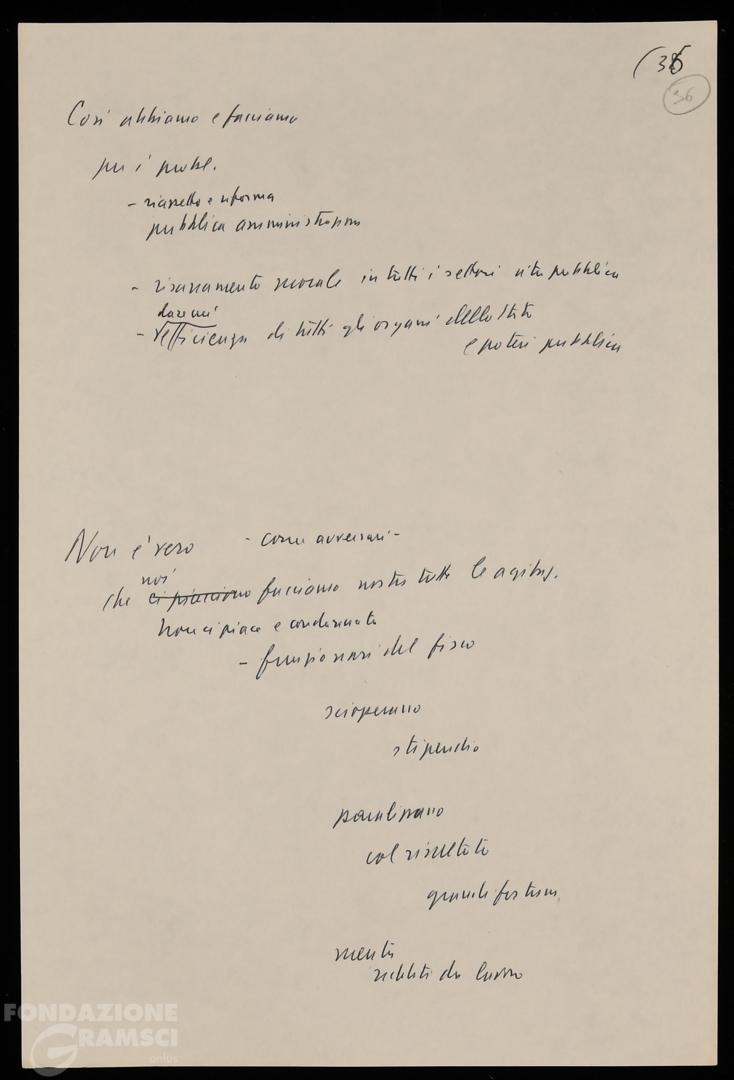 (36
36
Così abbiamo e facciamo
per i probl.
- riassetto e riforma
pubblica amministrazione
- risanamento morale in tutti i settori vita pubblica
- efficienza di tutti gli organi dello Stato
e poteri pubblici
Non è vero - come avversari -
noi
che ci piacciono facciamo nostre tutte le agitaz.
Non ci piace e condannata
- funzionari del fisco
scioperano
stipendio
paralizzano
col risultato
grandi fortune
mentre
redditi da lavoro
FONDAZIONE
GRAMSCI
onlus